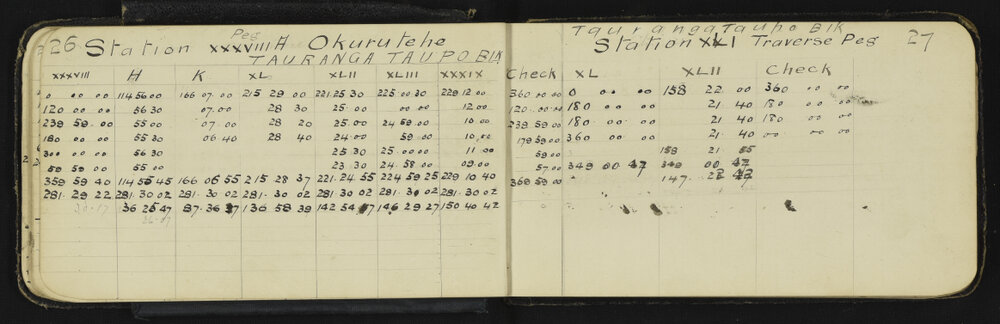 26 Station Peg XXXVIII A Okurutehe
TAURANGA TAUPO BlK
XXXVIII H K XL XLII XLIII XXXIX Check
0 00 00 114 56 00 166 07 00 215 29 00 221 25 30 225 00 30 229 12 00 360 00 00
120 00 00 56 30 07 00 28 30 25 00 00 00 12 00 120 00 00
239 59 00 55 00 07 00 28 20 25 00 24 59 00 10 00 239 59 00
180 00 00 55 30 06 40 28 40 24 00 59 00 10 00 179 59 00
300 00 00 56 30 25 30 25 00 00 11 00 59 00
59 59 00 55 00 23 30 24 58 00 09 00 57 00
359 59 40 114 55 45 166 06 55 215 28 37 221 24 55 224 59 25 229 10 40 359 59 00
281 29 22 281 30 02 281 30 02 281 30 02 281 30 02 281 30 02 281 30 02
36 25 47 87 36 57 136 58 39 142 54 57 146 29 27 150 40 42
Tauranga Taupo Blk
Station XLI Traverse Peg 27
XL XLII Check
0 00 00 158 22 00 360 00 00
180 00 00 21 40 180 00 00
180 00 00 21 40 180 00 00
360 00 00 21 40 00 00
158 21 55
349 00 47 349 00 47
147 22 42